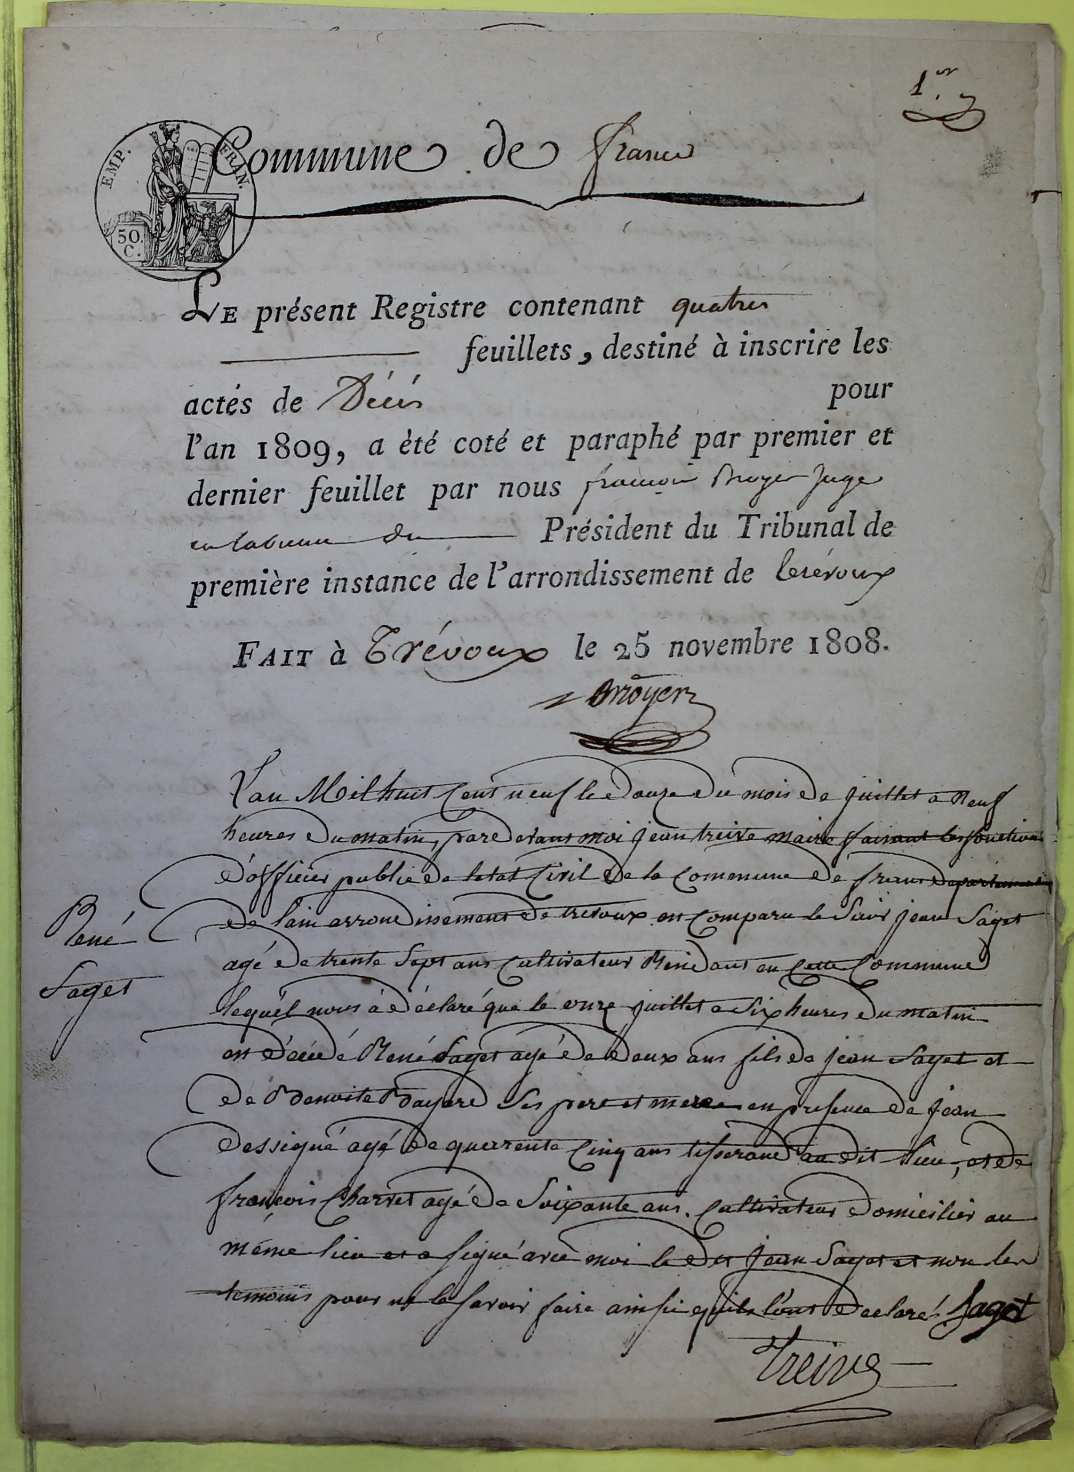 1er
EMP. FRAN.
50. C.
Commune de frans
LE présent Registre contenant quatres
feuillets, destiné à inscrire les
actes de Décés pour
l'an 1809, a été coté et paraphé par premier et
dernier feuillet par nous françois Broyer Juge
Président du Tribunal de
première instance de l'arrondissement de trévoux
FAIT à Trévoux le 25 novembre 1808.
Broyer
L'an Mil huit Cent neuf le douze du mois de juillet a Neuf
heures du matin, pardevant moi jean treive maire faisant les fonctions
d'officier public de letat Civil de la Commune de frans departement
de lain arrondissement de trevoux est Comparu le Sieur jean Saget
agé de trente Sept ans Cultivateur Residant en Cette Commune
lequel nous à déclaré que le onze juillet a Six heures du matin
René
Saget
est décédé René Saget agé de deux ans fils de jean Saget et
de Benoite Bayard Ses pere et mere en presence de jean
dessigne agé de quarrente Cinq ans tisserand au dit lieu, et de
françois Charvet agé de Soixante ans. Cultivateur domicilier au
même lieu et a signé avec moi le dit jean Saget et non les
temoins pour ne le savoir faire ainsi quils l'ont declaré. Saget
Treive